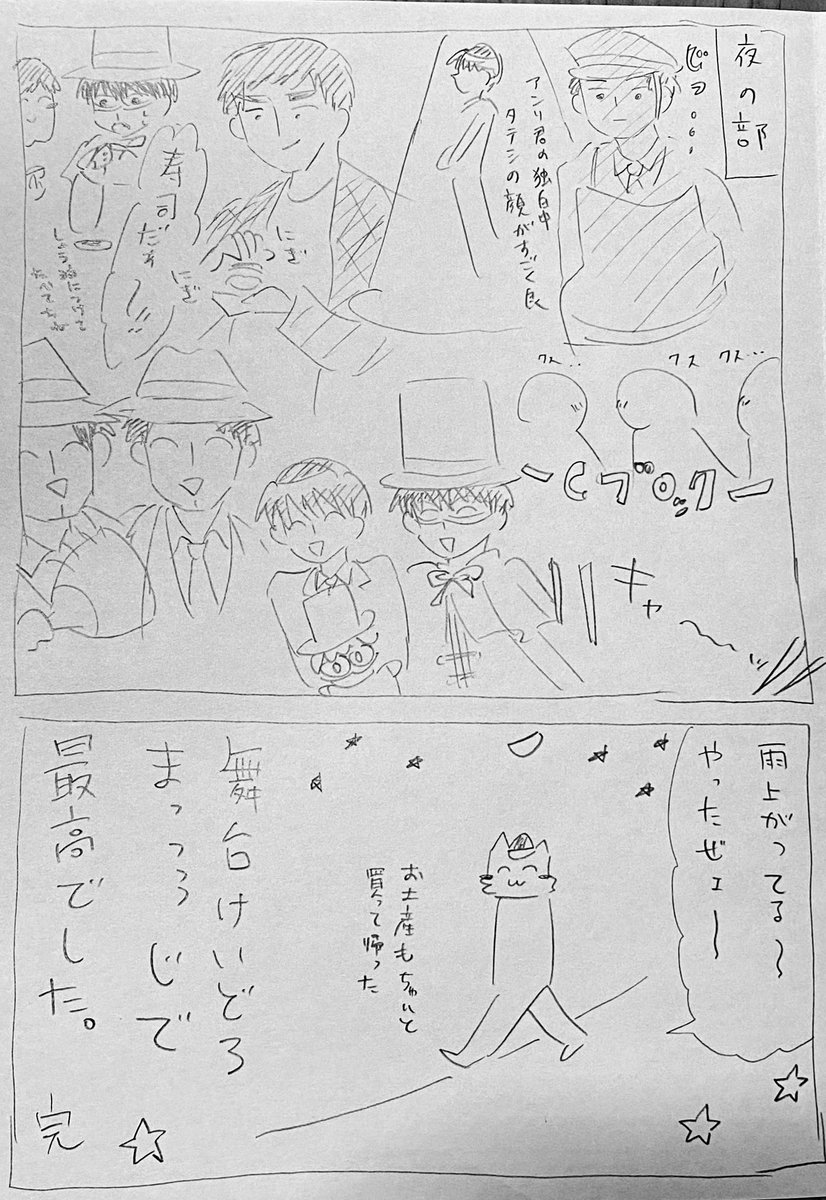 夜の部
ピョ…
アンリ君の独白中
タテシの顔がすごく良
にぎ
にぎ
寿司だぞ〜
クス…
クス
クス…
Cブロック
キャーッ
雨上がってる〜
やったぜェー
お土産もちゃんと
買って帰った
舞台けいどろ
まっっっじで
最高でした。
完